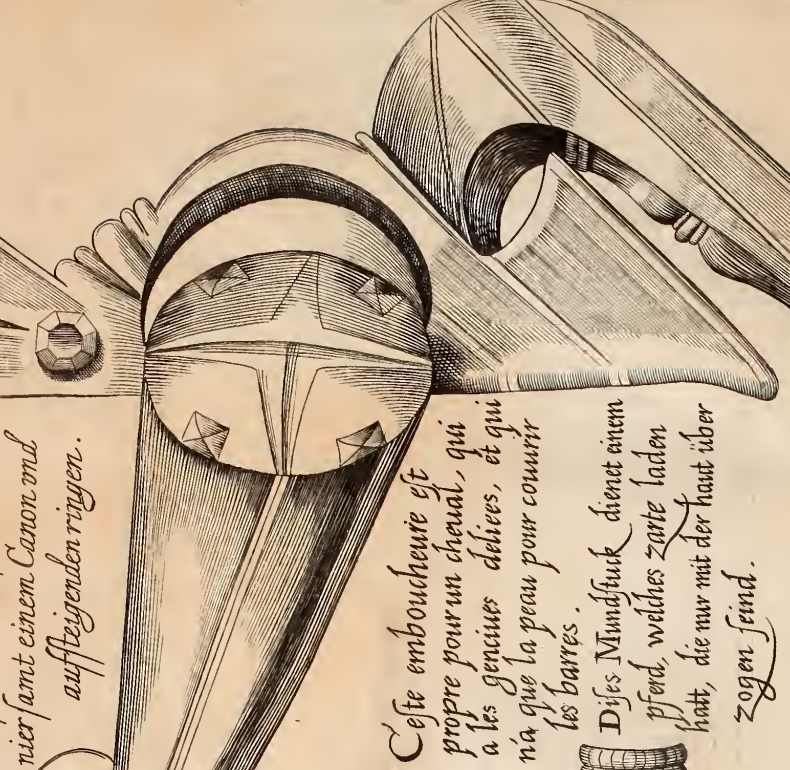 nier samt einem Canon vnd
auffsteigenden ringen.
Ceste emboucheure est
propre pour un cheual, qui
a les genciues deliees, et qui
n'a que la peau pour couurir
les barres.
Dises Mundstuck dienet einem
pferd, welches zarte laden
hatt, die nur mit der haut über
zogen seind.